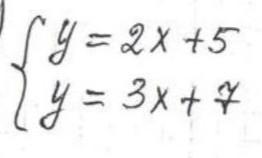 y = 2x + 5
y = 3x + 7